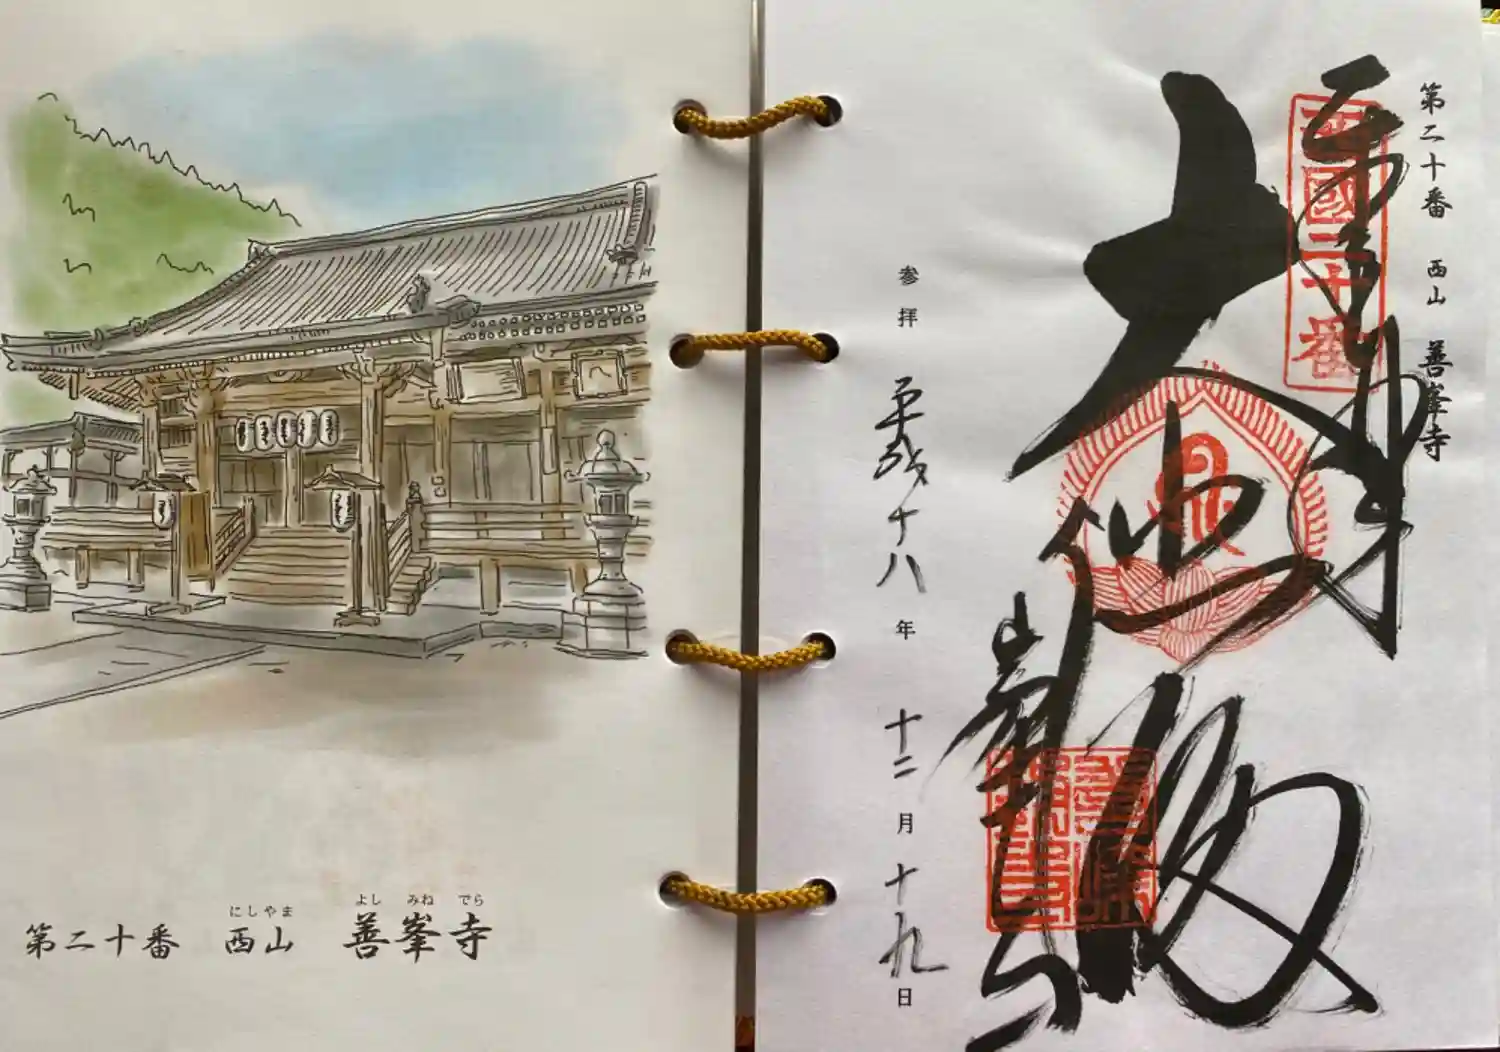 第二十番 西山 善峯寺
にしやま よしみねでら
第二十番 西山 善峯寺
西國二十番
奉拝
大悲殿
善峯寺
参拝 平成十八年 十二月 十九日